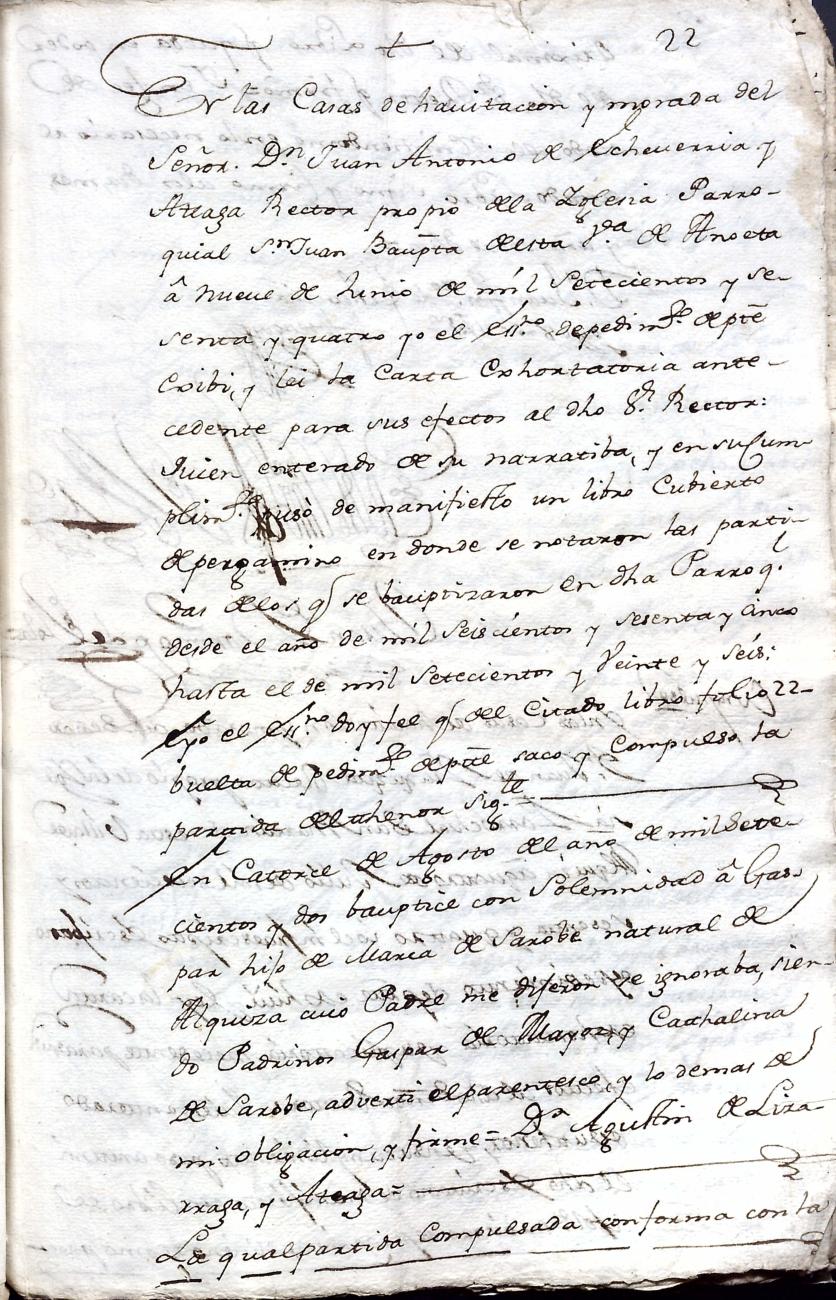 + 22
En las Casas de havitacion y morada del
Señor. Dn Juan Antonio de Echeverria y
Atraga Rector propio dela Iglesia Parro-
quial Sn Juan Baupta desta Va de Anoeta
â nueve de Junio de mil Setecientos y se-
senta y quatro yo el Essno de pedimto de pte
Exibi, y lei la Carta Exhortatoria ante-
cedente para sus efectos al dho Sr. Rector:
Quien enterado de su narratiba, y en su Cum-
plimto puso de manifiesto un libro Cubierto
de pergamino en donde se notaron las parti-
das delos q se bauptizaron en dha Parroql
desde el año de mil seiscientos y sesenta y cinco
hasta el de mil setecientos y Veinte y seis:
Eyo el Essno doy fee q del Citado libro folio 22-
buelta de pedimto de pte saco y Compulso la
partida del thenor sigte =
En Catorce de Agosto del año de mil Sete-
cientos y dos bauptice con Solemnidad â Gas-
par hijo de Maria de Sarobe natural de
Alquiza cuio Padre me dijeron se ignoraba, sien-
do Padrinos Gaspar de Mayoz, y Cathalina
de Sarobe, adverti el parentesco, y lo demas de
mi obligacion, y firme = Dn Agustin de Liza-
rraga, y Ateaga =
La qual partida Compulsada conforma con la